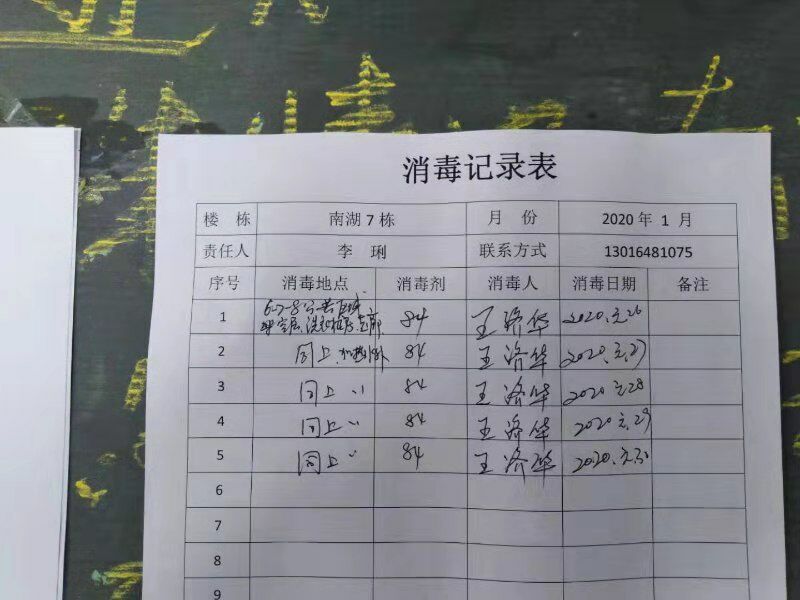 消毒记录表
楼 栋 南湖7栋 月 份 2020年1月
责任人 李 琍 联系方式 13016481075
序号 消毒地点 消毒剂 消毒人 消毒日期 备注
1 6-7-8公共区域 84 王济华 2020.元26
2 同上 84 王济华 2020.元.27
3 同上 ‘‘ 84 王济华 2020元28
4 同上 ‘‘ 84 王济华 2020元.29
5 同上 ‘‘ 84 王济华 2020.元30
6
7
8
9